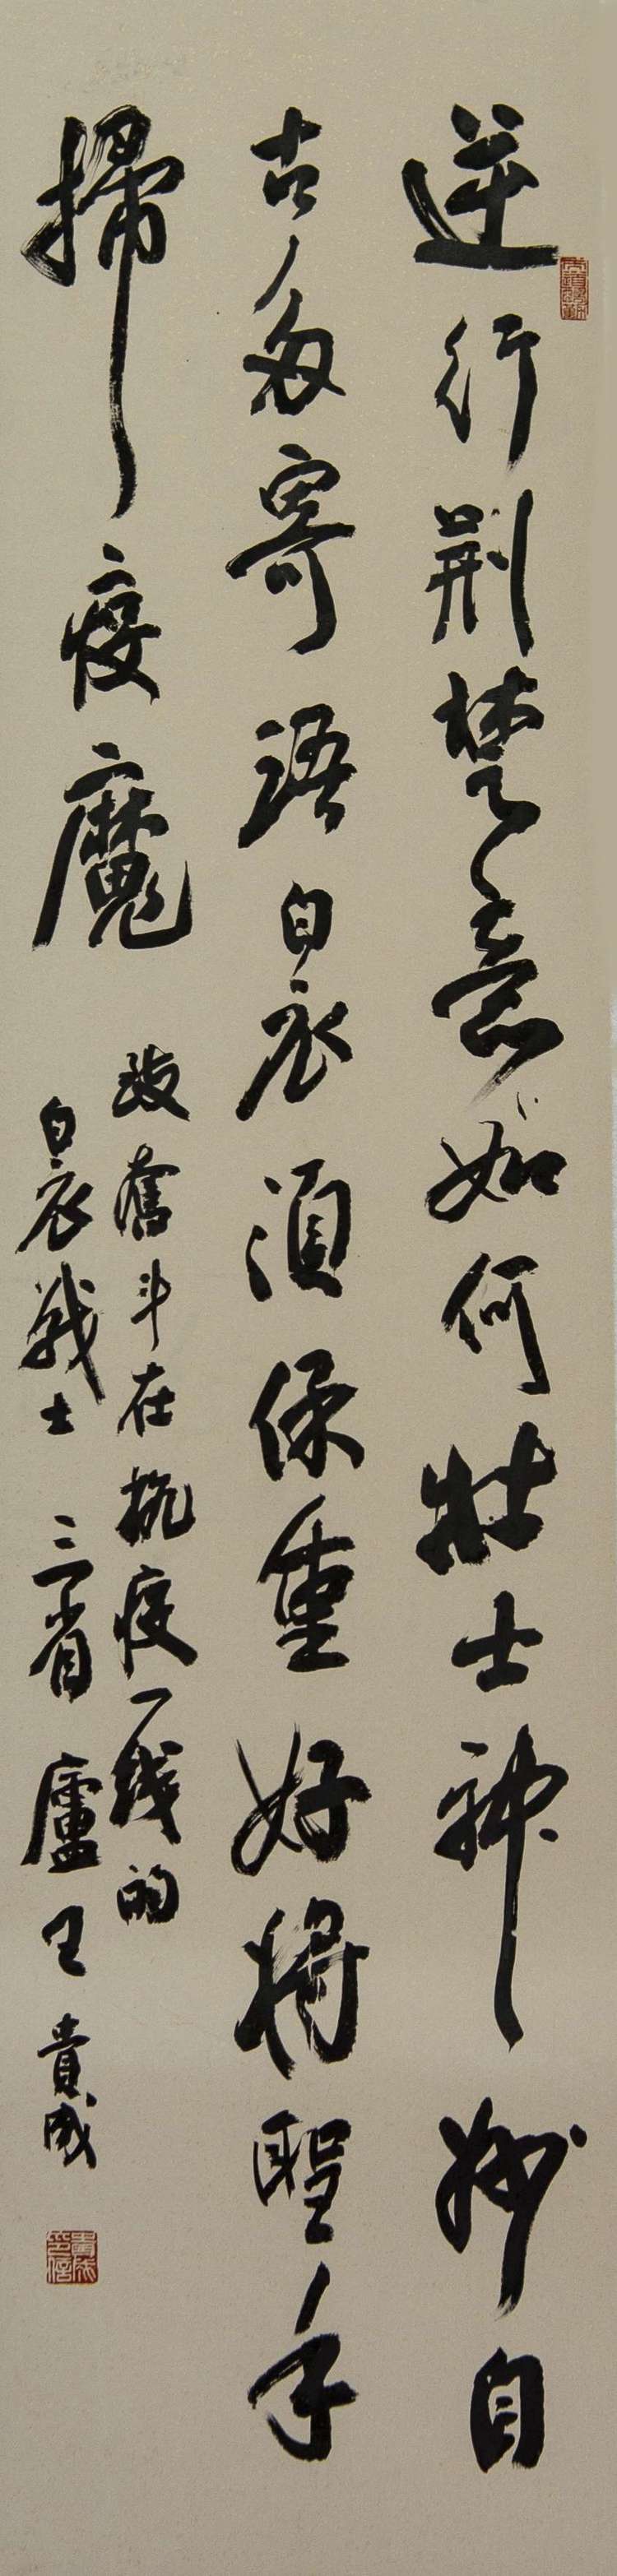 逆行荆楚意如何壮士神妙自
古多寄语白衣须保重好将聖手
掃疫魔
致奮斗在抗疫一线的
白衣战士 三省廬王貴成